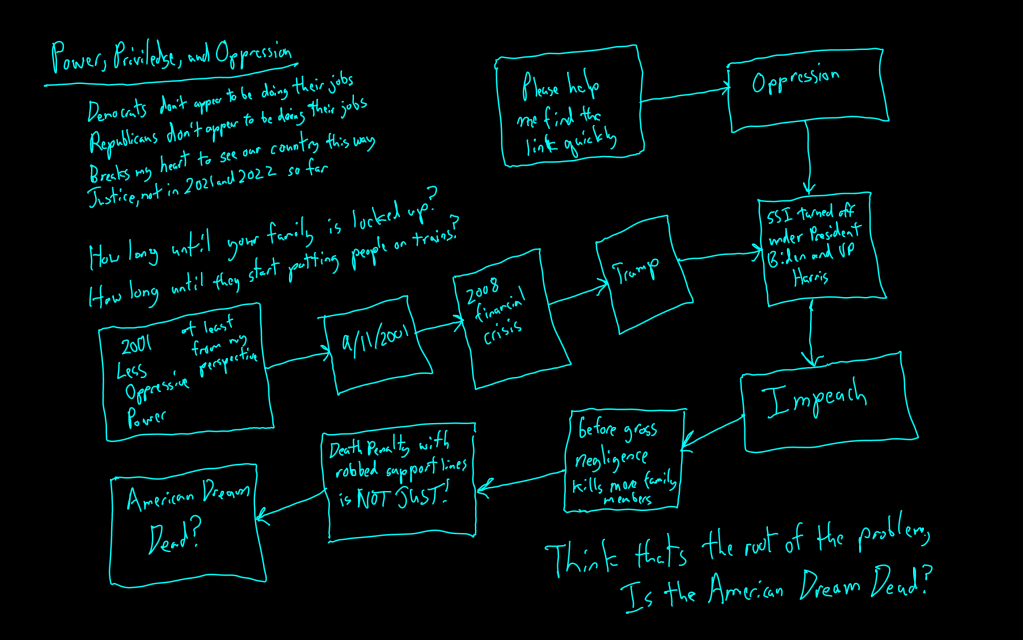 Power, Priviledge, and Oppression
Democrats don't appear to be doing their jobs
Republicans don't appear to be doing their jobs
Breaks my heart to see our country this way
Justice, not in 2021 and 2022 so far
How long until your family is locked up?
How long until they start putting people on trains?
Please help
me find the
link quickly
Oppression
SSI turned off
under President
Biden and VP
Harris
Trump
2008
financial
crisis
9/11/2001
2001
Less
Oppressive
Power
at least
from my
perspective
Impeach
before gross
negligence
kills more family
members
Death Penalty with
robbed support lines
is NOT JUST!
American Dream
Dead?
Think that's the root of the problem,
Is the American Dream Dead?